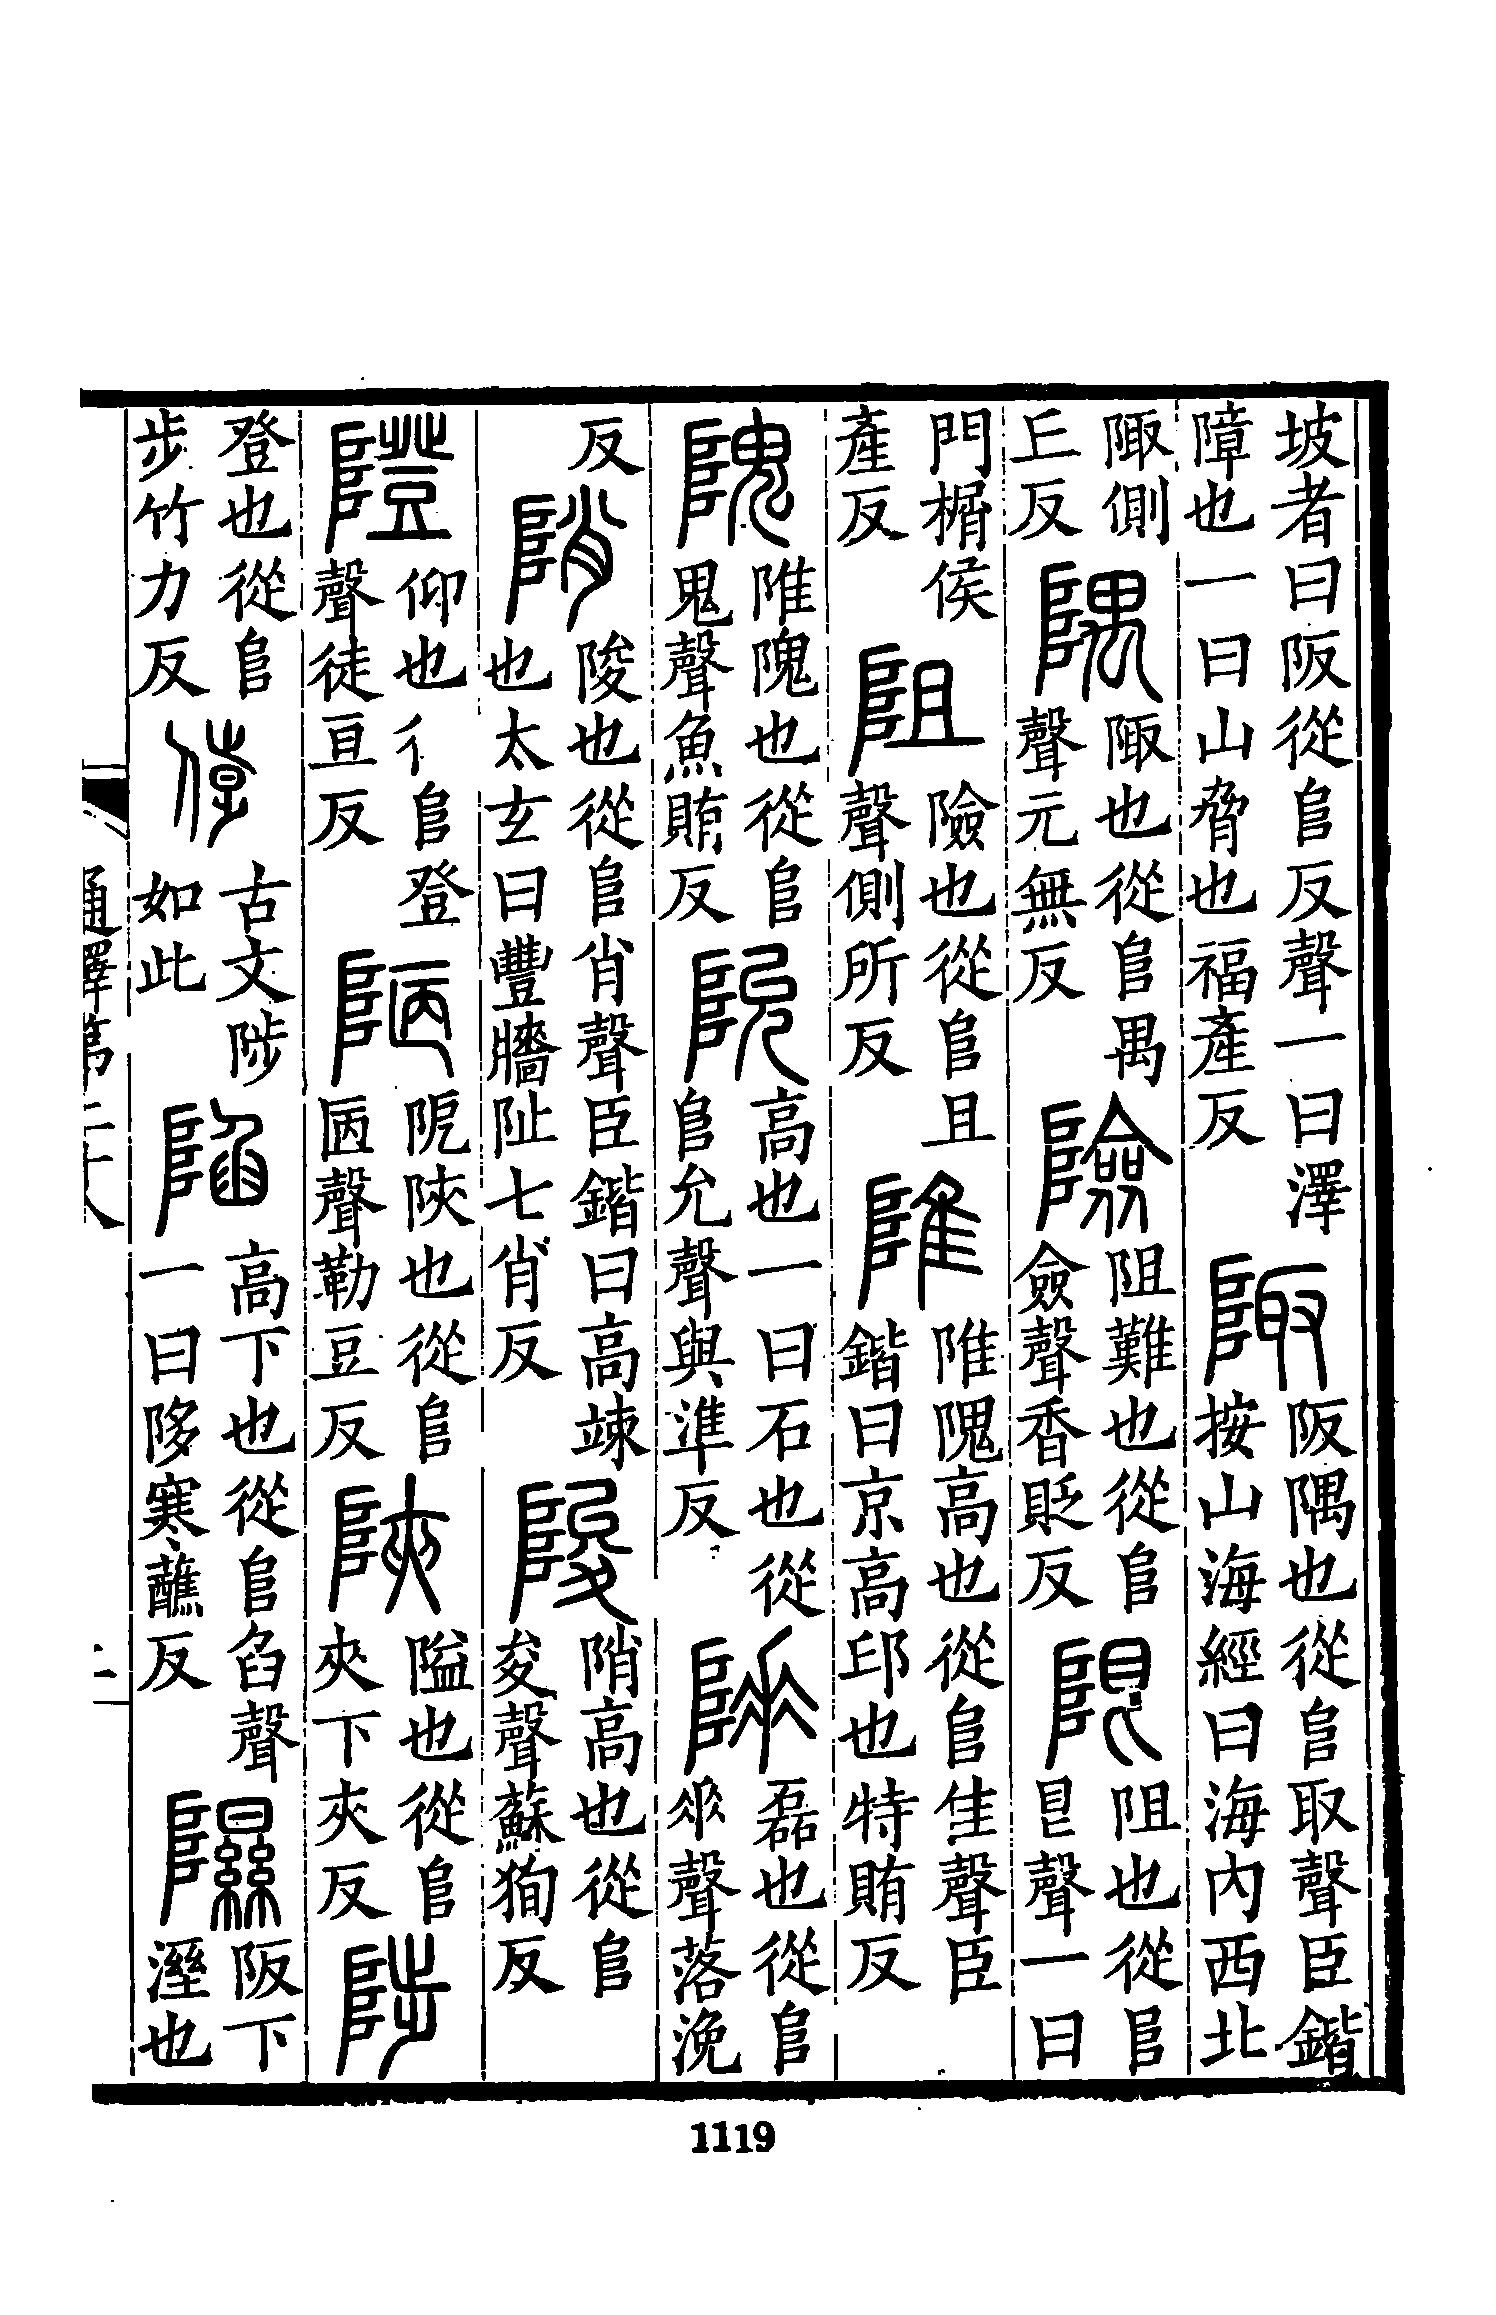 坡者曰阪從𨸏反聲一曰澤
障也一曰山脅也福產反
陬
阪隅也從𨸏取聲臣鍇
按山海經曰海內西北
陬側
丘反
隅
陬也從𨸏禺
聲元無反
險
阻難也從𨸏
僉聲香貶反
限
阻也從𨸏
㫐聲一曰
門榍侯
產反
阻
險也從𨸏且
聲側所反
陮
陮隗高也從𨸏隹聲臣
鍇曰京高邱也特賄反
隗
陮隗也從𨸏
鬼聲魚賄反
阭
高也一曰石也從
𨸏允聲與準反
𨹟
磊也從𨸏
𠂢聲落浼
反
陗
陖也從𨸏肖聲臣鍇曰高竦
也太玄曰豐牆阯七肖反
陖
陗高也從𨸏
夋聲蘇徇反
隥
仰也彳𨸏登
聲徒亘反
陋
阨陜也從𨸏
㔷聲勒豆反
陜
隘也從𨸏
夾下夾反
陟
登也從𨸏
步竹力反
古文陟
如此
陷
高下也從𨸏臽聲
一曰陊寒蘸反
隰
阪下
溼也
通釋第二十八
1119